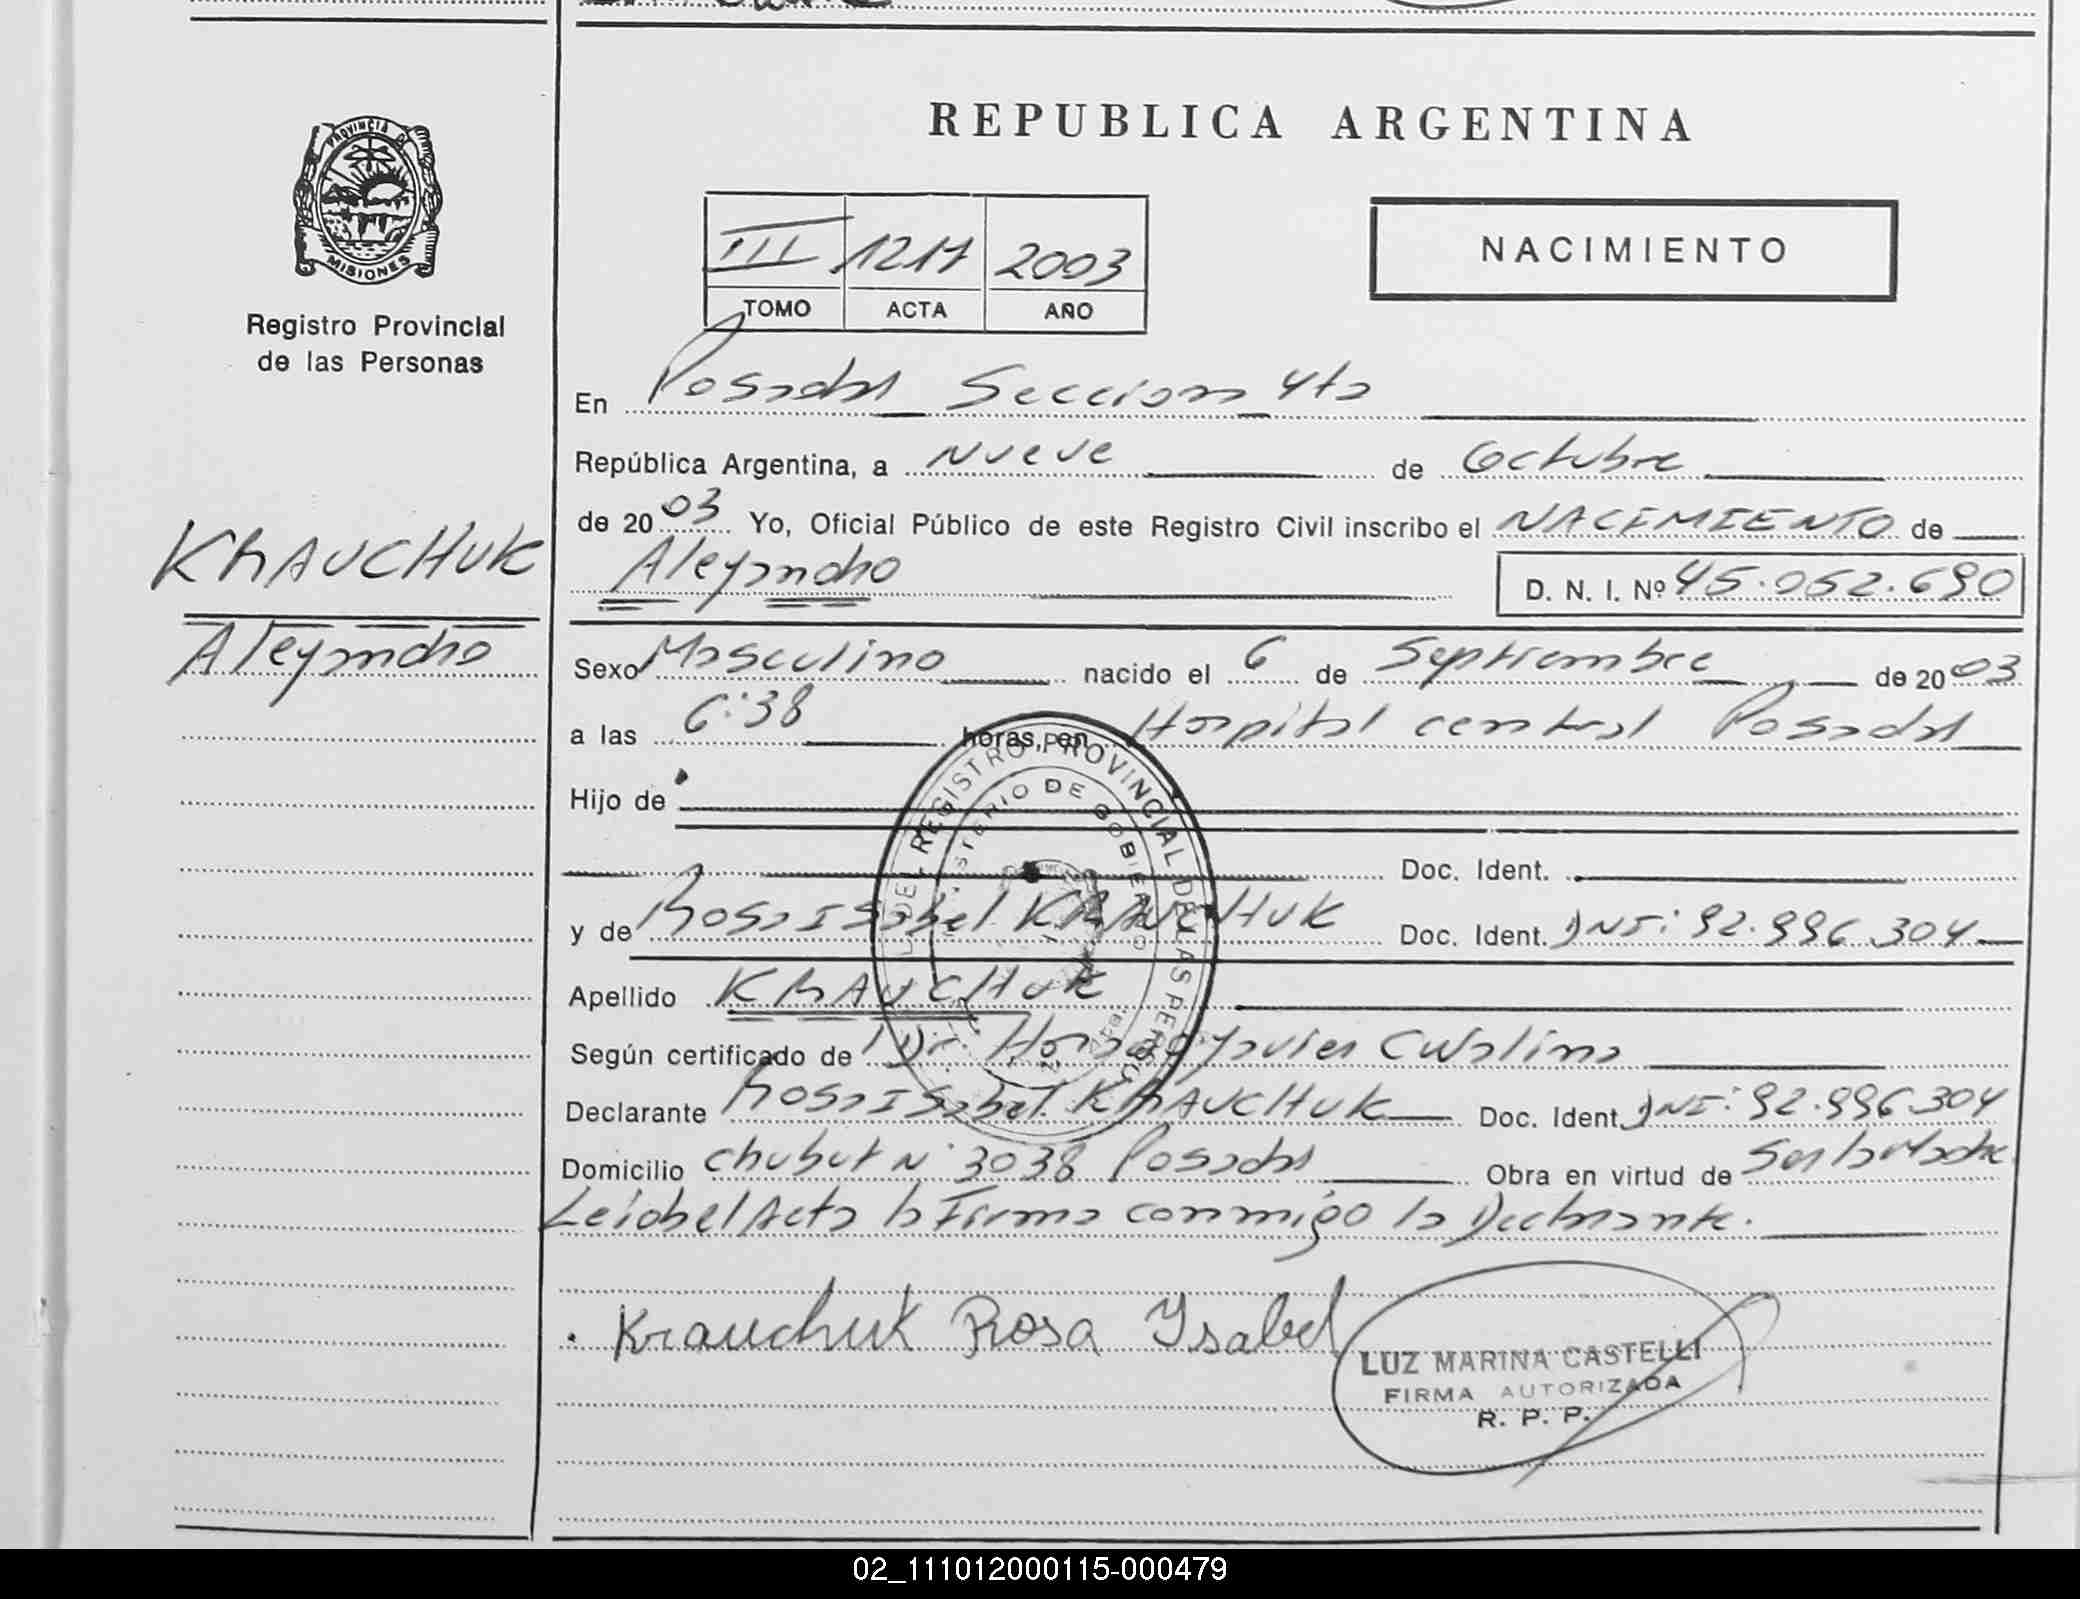 REPUBLICA ARGENTINA
PROVINCIA DE MISIONES
Registro Provincial
de las Personas
III 1217 2003
TOMO ACTA AÑO
NACIMIENTO
En Posadas Seccion 4ta
República Argentina, a Nueve de Octubre
de 2003 Yo, Oficial Público de este Registro Civil inscribo el NACIMIENTO de
Alejandro D. N. I. Nº 45.052.690
KRAUCHUK
Alejandro
Sexo Masculino nacido el 6 de Septiembre de 2003
a las 6:38 horas, en Hospital central Posadas
Hijo de
Doc. Ident.
y de Rosa Isabel KRAUCHUK Doc. Ident. DNI: 92.996.304
Apellido KRAUCHUK
Según certificado de Dr. Javier
Declarante Rosa Isabel KRAUCHUK Doc. Ident. DNI: 92.996.304
Domicilio Chubut N° 3038 Posadas Obra en virtud de Ser la Madre
Leida el Acta la Firma conmigo la Declarante.
Krauchuk Rosa Ysabel
LUZ MARINA CASTELLI
FIRMA AUTORIZADA
R. P. P.
DEL REGISTRO PROVINCIAL DE LAS PERSONAS
MINISTERIO DE GOBIERNO
02_111012000115-000479